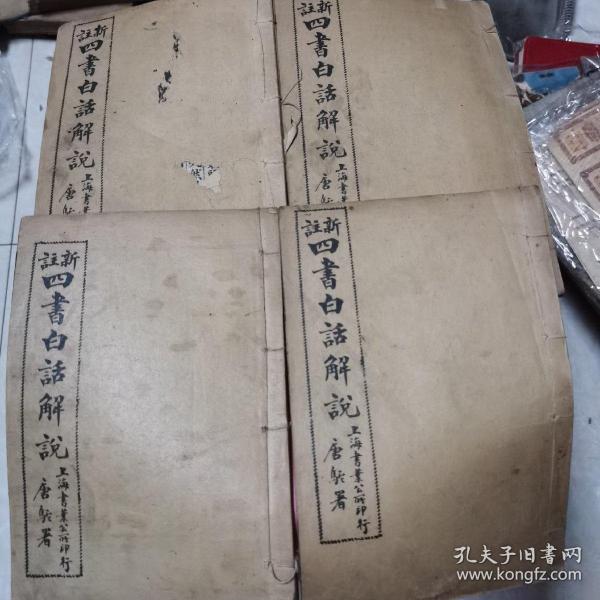 新註
四書白話解說
上海書業
唐
新註
四書白話解說
上海書業
唐
新註
四書白話解說
上海書業公所印行
唐駝署
新註
四書白話解說
上海書業公所印行
唐駝署
孔夫子旧书网
www.kongfz.com